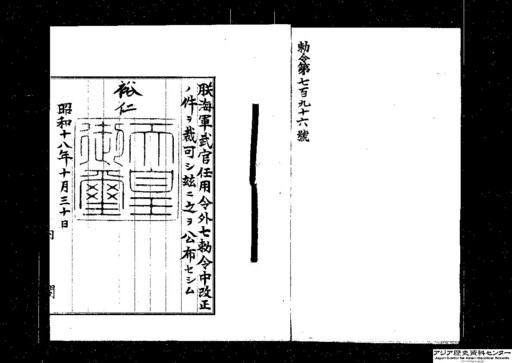 勅令第七百九十六號
朕海軍武官任用令外七勅令中改正
ノ件ヲ裁可シ玆ニ之ヲ公布セシム
裕仁
天皇御璽
昭和十八年十月三十日
内閣
アジア歴史資料センター
Japan Center for Asian Historical Records